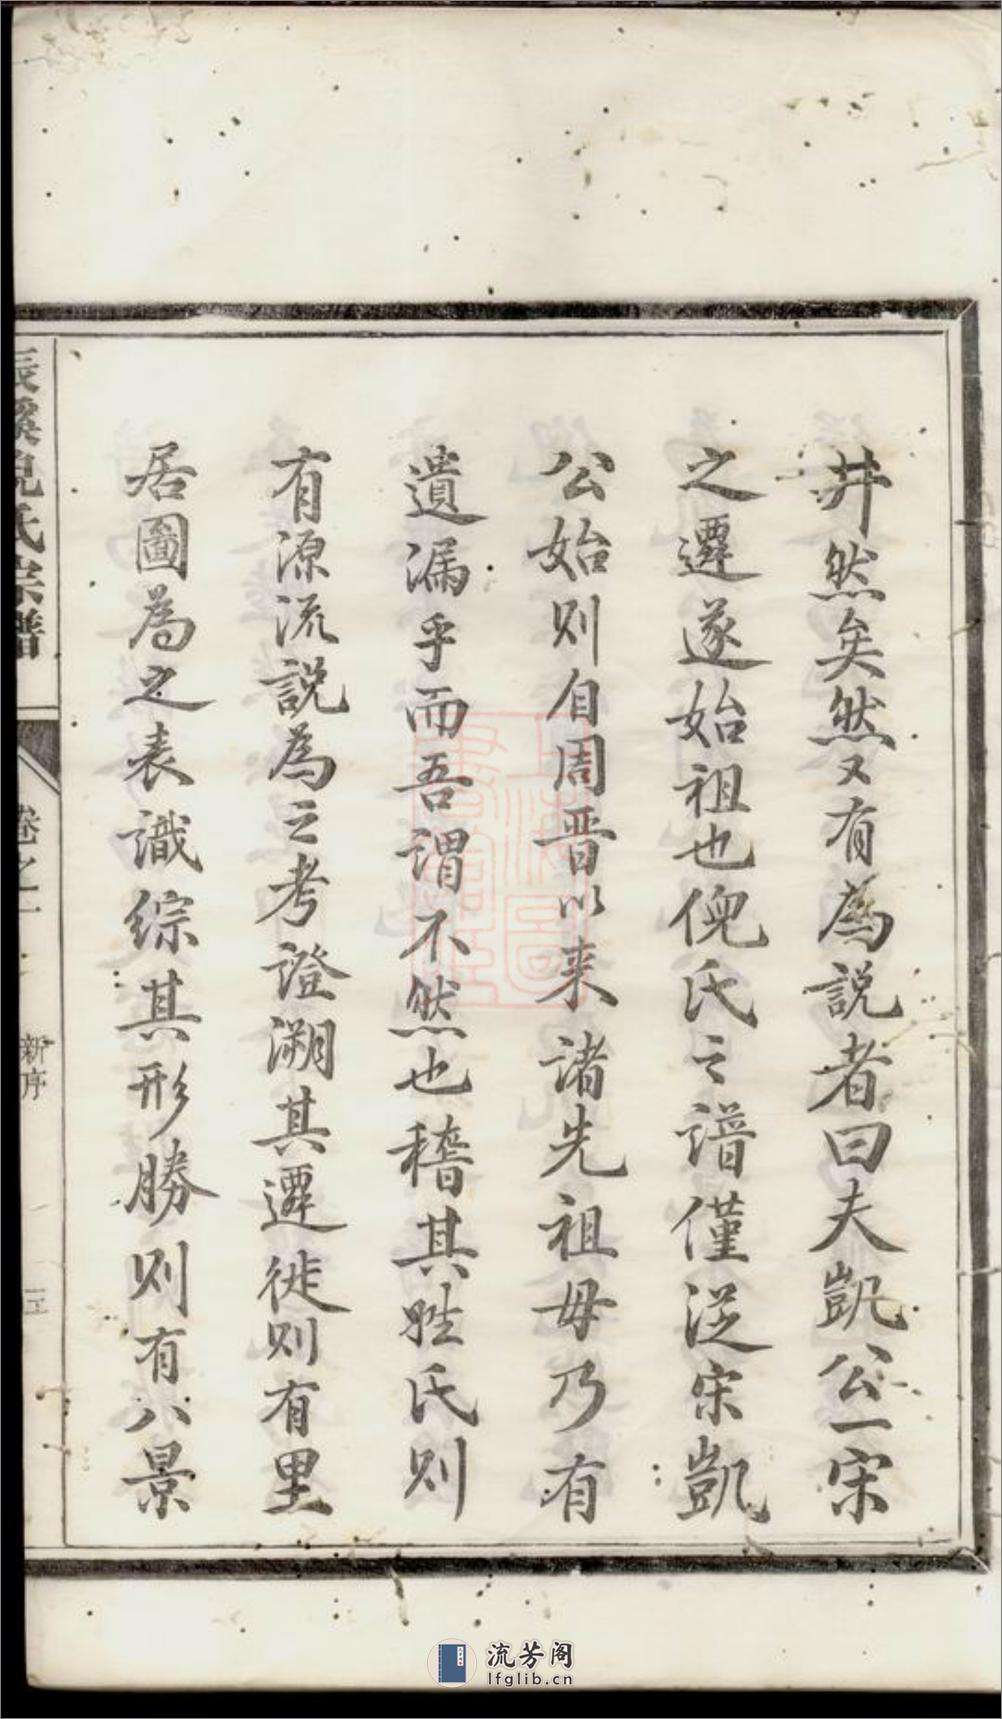 井然矣然又有為説者曰夫凱公一宋
之遷遂始祖也倪氏之譜僅從宋凱
公始則自周晋以来諸先祖毋乃有
遺漏乎而吾謂不然也稽其姓氏則
有源流説為之考證溯其遷徙則有里
居圖為之表識綜其形勝則有八景
辰溪倪氏宗譜
卷之一
新序
三
上海圖書館藏
流芳阁
lfglib.cn